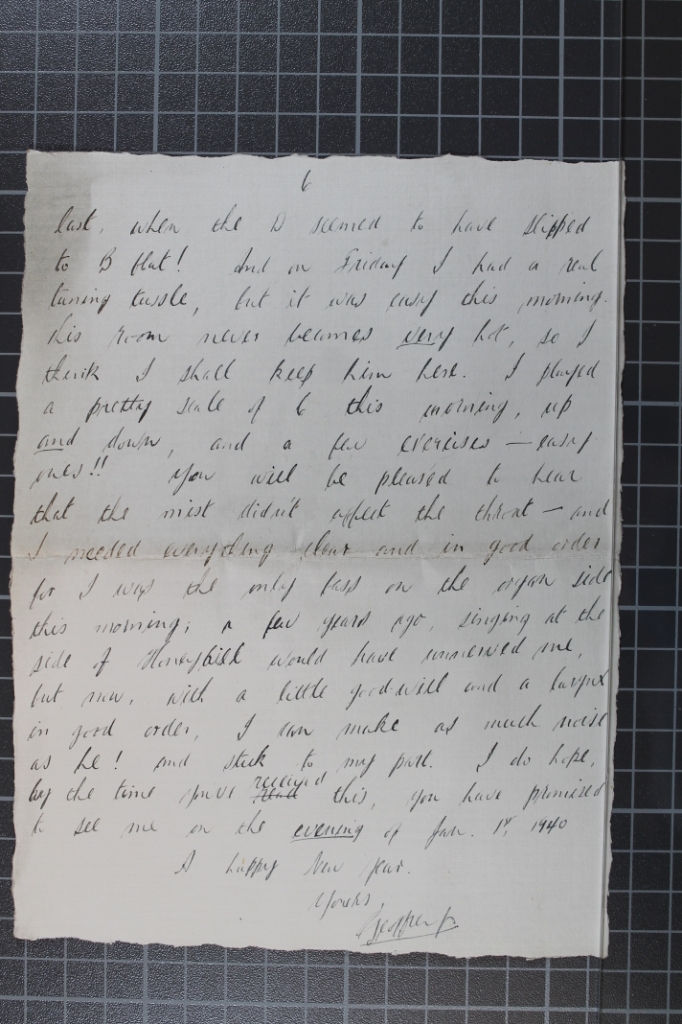 6
last, when the D seemed to have slipped
to B flat! And on Friday I had a real
tuning tussle, but it was easy this morning.
This room never becomes very hot, so I
think I shall keep him here. I played
a pretty scale of G this morning, up
and down, and a few exercises — easy
ones!! You will be pleased to hear
that the mist didn't affect the throat — and
I needed everything clear and in good order
for I was the only bass on the organ side
this morning; a few years ago, singing at the
side of Honeyball would have unnerved me,
but now, with a little good-will and a larynx
in good order, I can make as much noise
as he! And stick to my part. I do hope,
by the time you've received this, you have promised
to see me on the evening of Jan. 1st, 1940
A happy New Year.
Yours,
Geoffrey